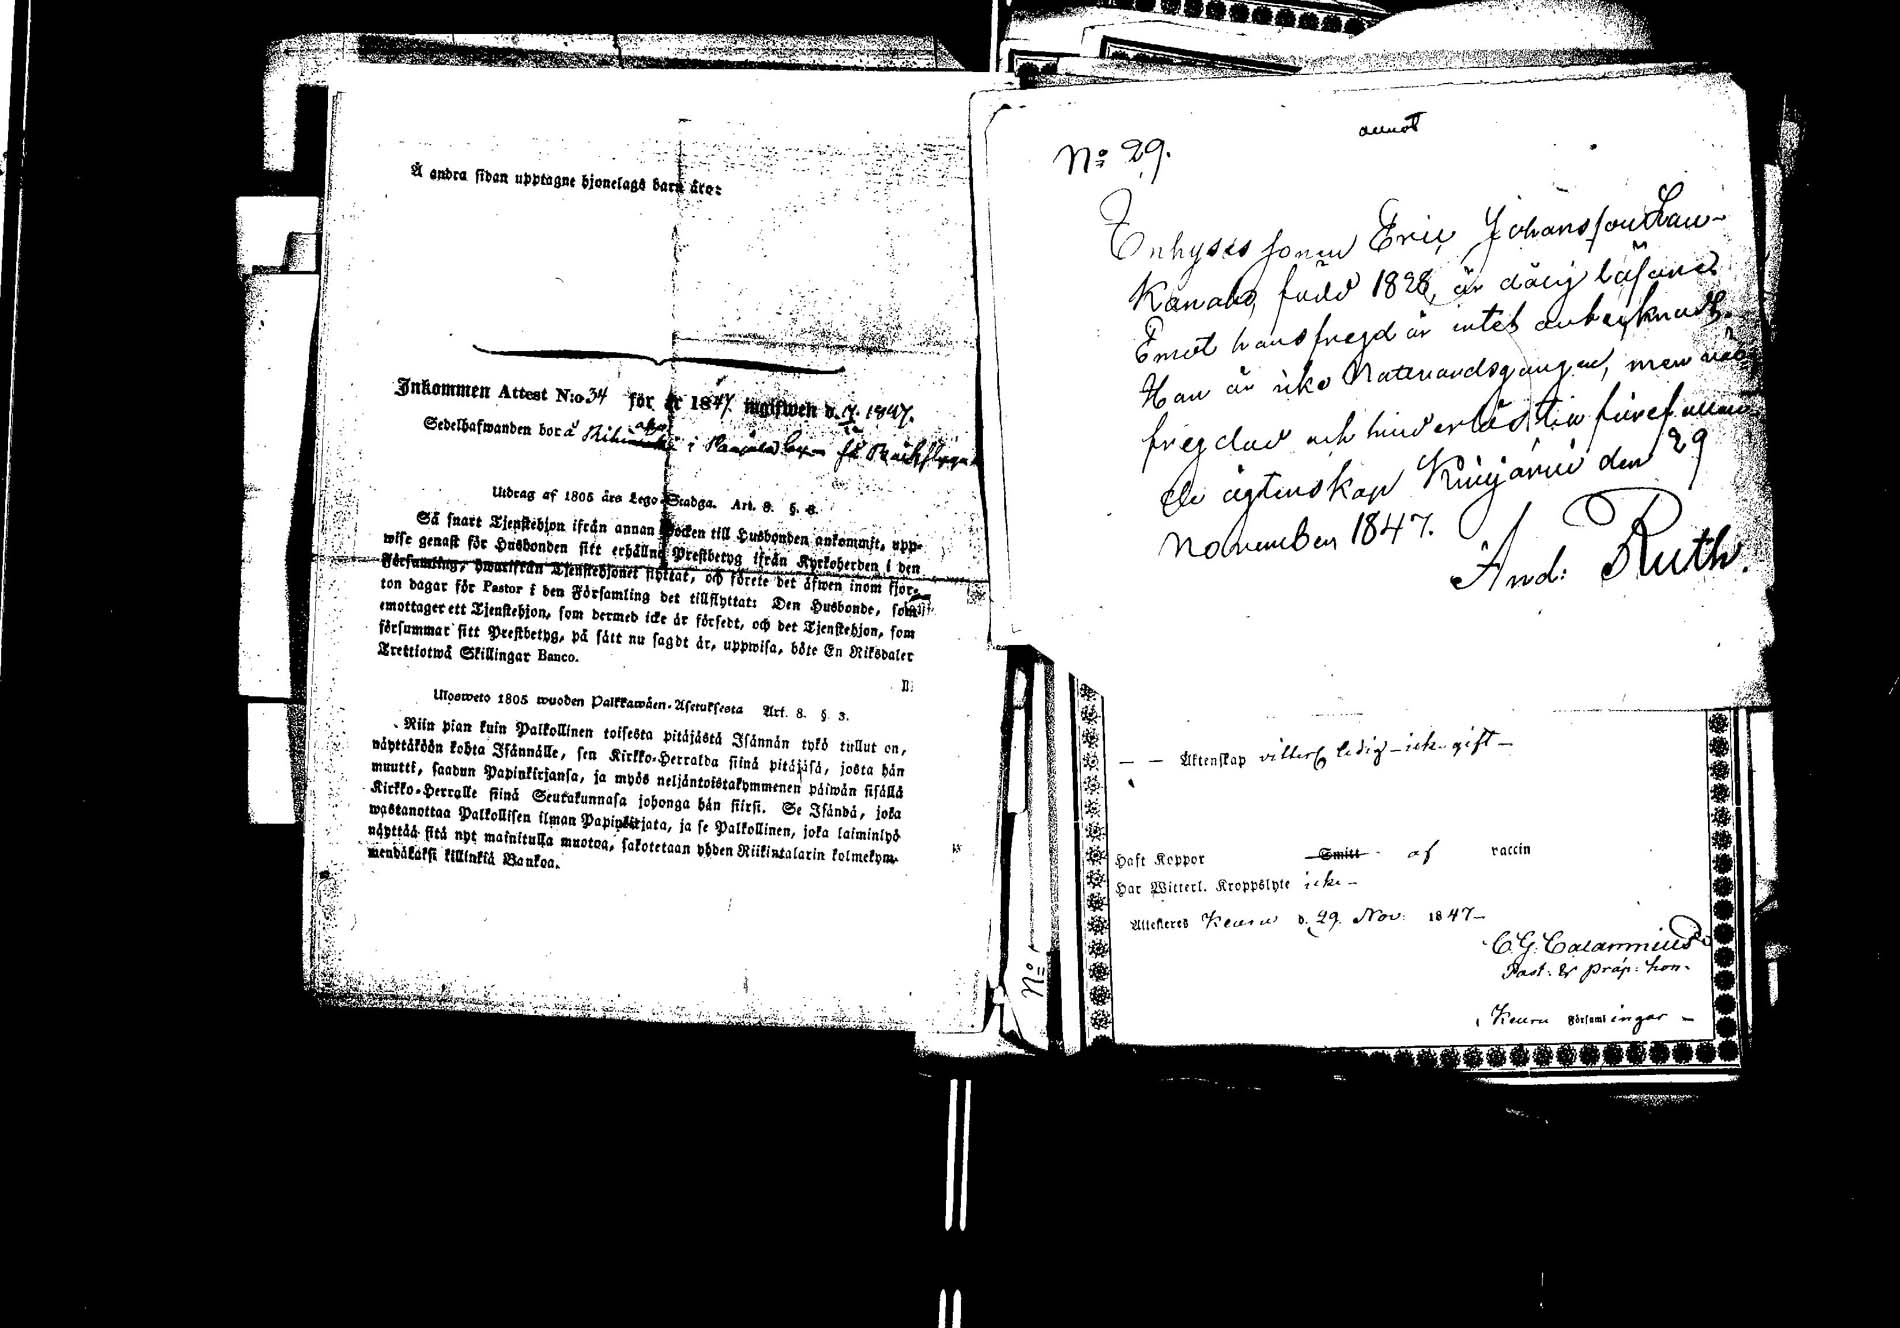 Å andra sidan upptagne hjonelags barn äro:
Inkommen Attest N:o 34 för år 1847. ingifwen d. 1847.
Sedelhafwanden bor å i by
Utdrag af 1805 års Lego-Stadga. Art. 8. §. 3.
Så snart Tjenstehjon ifrån annan Socken till Husbonden ankommit, upp-
wise genast för Husbonden sitt erhållna Prestbetyg ifrån Kyrkoherden i den
Församling, hwarifrån Tjenstehjonet flyttat, och förete det äfwen inom fjor-
ton dagar för Pastor i den Församling det tillflyttat: Den Husbonde, som
emottager ett Tjenstehjon, som dermed icke är försedt, och det Tjenstehjon, som
försummar sitt Prestbetyg, på sätt nu sagdt är, uppwisa, böte En Riksdaler
Trettiotwå Skillingar Banco.
Ulosweto 1805 wuoden Palkkawäen-Asetuksesta Art. 8. § 3.
Niin pian kuin Palkollinen toisesta pitäjästä Isännän tykö tullut on,
näyttäköön kohta Isännälle, sen Kirkko-Herralda siinä pitäjäsä, josta hän
muutti, saadun Papinkirjansa, ja myös neljäntoistakymmenen päiwän sisällä
Kirkko-Herralle siinä Seurakunnasa johonga hän siirsi. Se Isändä, joka
wastanottaa Palkollisen ilman Papinkirjata, ja se Palkollinen, joka laiminlyö
näyttää sitä nyt mainitulla muotoa, sakotetaan yhden Riikintalarin kolmekym-
mendäkaksi killinkiä Bankoa.
annot
No 29.
Enhyses sonen Eric Johansson Lau-
kanaho, född 1828, är dålig läsare.
Emot hans frejd är intet anteyknadt.
Han är icke Nattvardsgången, men
frejdad och hinderlös till förefallan-
de ägtenskap Kivijärvi den 29
November 1847.
And: Ruth.
— — Äktenskap vitterl. ledig — icke gift —
Haft Koppor Smitt af vaccin
Har Witterl. Kroppslyte icke —
Attesteres Keuru d. 29. Nov: 1847 —
C. G. Calamnius
Past: & Präp: hon.
i Keuru Församlingar —
No